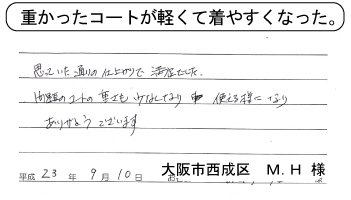 重かったコートが軽くて着やすくなった。
思っていた通りの仕上がりで満足でした。
問題のコートの重さも少なくなり 使える様になり
ありがとうございます
平成 23 年 9月 10日 大阪市西成区 M.H 様